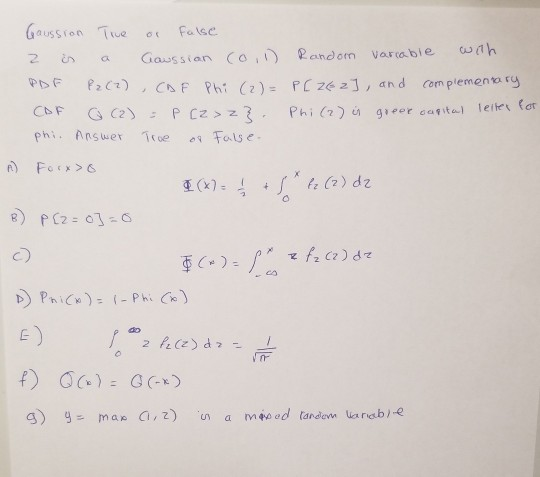 Gaussian True or False
Z is a Gaussian (0,1) Random variable with
PDF Pz(z), CDF Phi (z) = P[Z≤z], and complementary
CDF Q(z) = P[Z>z}. Phi(z) is greek capital letter for
phi. Answer True or False.
A) For x>0
Φ(x) = 1/2 + ∫₀ˣ fz(z) dz
B) P[Z=0]=0
C)
Φ(x) = ∫₋∞ˣ z fz(z) dz
D) Phi(x) = 1-Phi(x)
E) ∫₀^∞ z fz(z) dz = 1/√π
f) Q(x) = Q(-x)
g) y = max (1,Z) is a mixed random variable